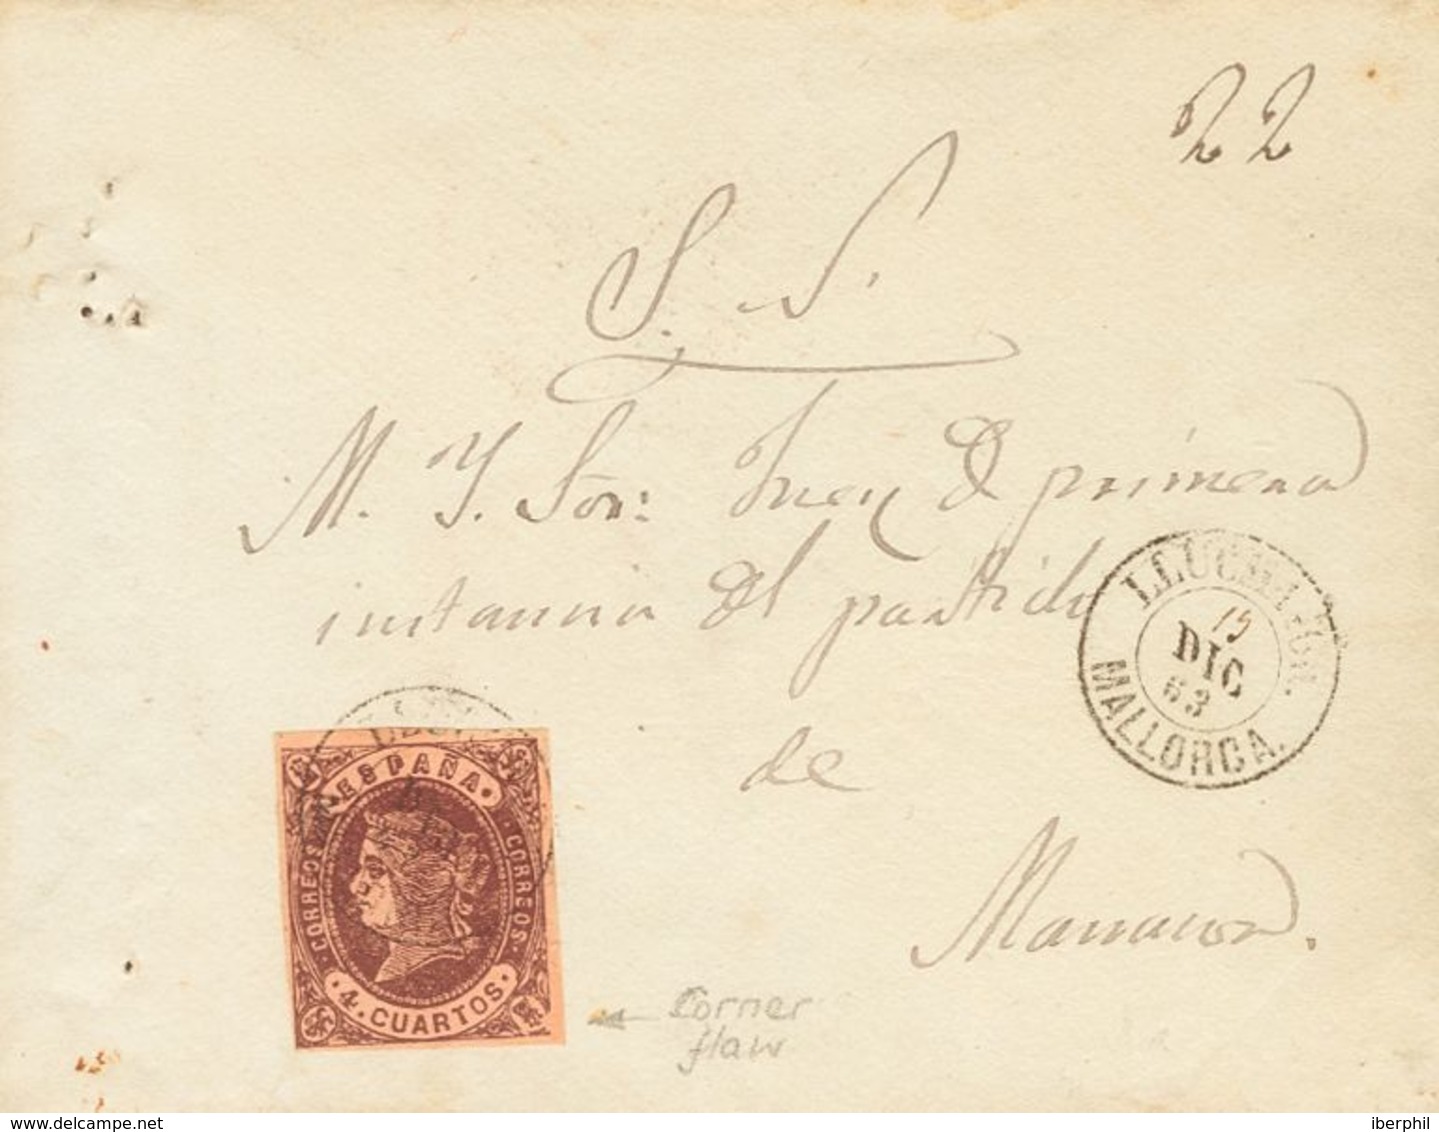 22
S. N.
M. Y. Sor: Juez de primera
instancia del partido
de
Manacor.
LLUCHMAYOR.
15
DIC
63
MALLORCA.
ESPAÑA
CORREOS
CORREOS.
4. CUARTOS.
Corner
flaw
www.delcampe.net
iberphil